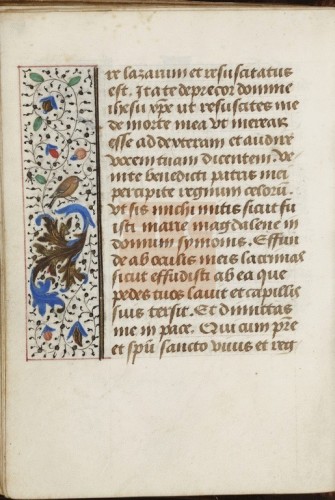 re lazarum et resuscitatus
est. Ita te deprecor domine
ihesu xpe ut resuscites me
de morte mea ut merear
esse ad dexteram et audire
vocem tuam dicentem. Ve
nite benedicti patris mei
percipite regnum celorum
Ut sis michi mitis sicut fu
isti marie magdalene in
domum symonis. Effun
de ab oculis meis lacrimas
sicut effudisti ab ea que
pedes tuos lauit et capillis
suis tersit. Et dimittas
me in pace. Qui cum pre
et spu sancto viuis et reg